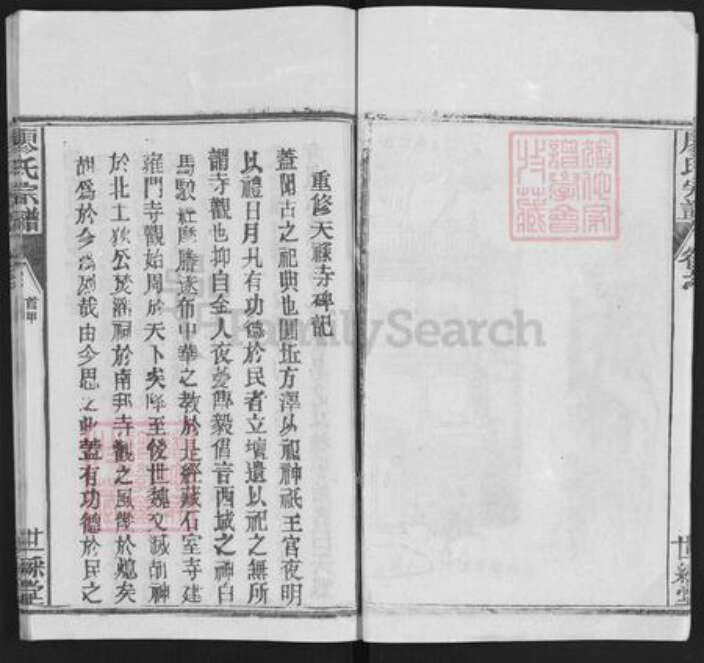 廖氏宗譜
卷之
世綵堂
重修天祿寺碑記
蓋聞古之祀典也圜坵方澤以祀神祇王宮夜明
以禮日月凡有功德於民者立壇遺以祀之無所
謂寺觀也抑自金人夜夢傅毅倡言西域之神白
馬馱經摩騰遂布中華之教於是經藏石室寺建
雍門寺觀始周於天下矣降至後世魏文滅胡神
於北土狄公焚淫祠於南邦寺觀之風幾於熄矣
胡為於今為烈哉由今思之此蓋有功德於民之
廖氏宗譜
首甲
世綵堂
FamilySearch